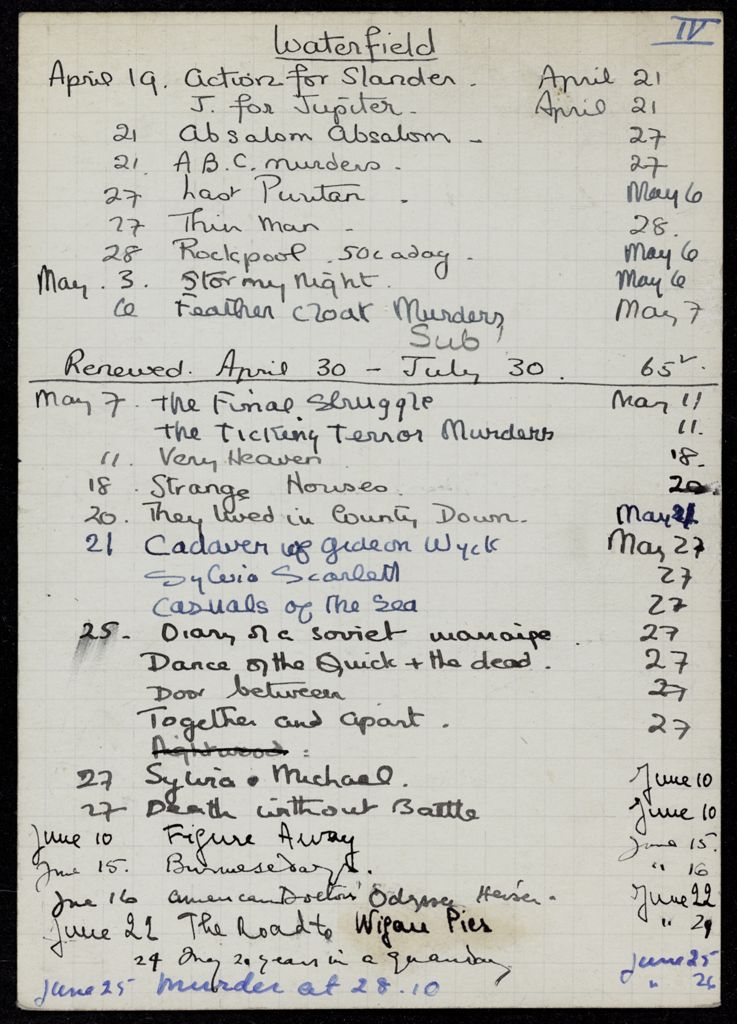 Waterfield IV
April 19. Action for Slander. April 21
J. for Jupiter. April 21
21 Absalom Absalom - 27
21. A B.C. murders. 27
27 Last Puritan. May 6
27 Thin Man - 28.
28 Rockpool .50c a day. May 6
May. 3. Stormy Night. May 6
6 Feather Cloak Murders May 7
Sub
Renewed. April 30 - July 30. 65
May 7. The Final Struggle May 11
The Ticking Terror Murders 11.
11. Very Heaven 18.
18 Strange Houses. 20.
20. They lived in County Down. May 21
21 Cadaver of Gideon Wyck May 27
Sylvia Scarlett 27
Casuals of the Sea 27
25. Diary of a soviet marraige. 27
Dance of the Quick + the dead. 27
Door between 27
Together and apart. 27
Nightwood
27 Sylvia & Michael. June 10
27 Death without Battle June 10
June 10 Figure Away June 15.
June 15. Burmese days. " 16
June 16 American Doctors' Odyssey Heiser. June 22
June 22 The Road to Wigan Pier " 24
24 My 20 years in a quandary June 25
June 25 Murder at 28.10 " 26